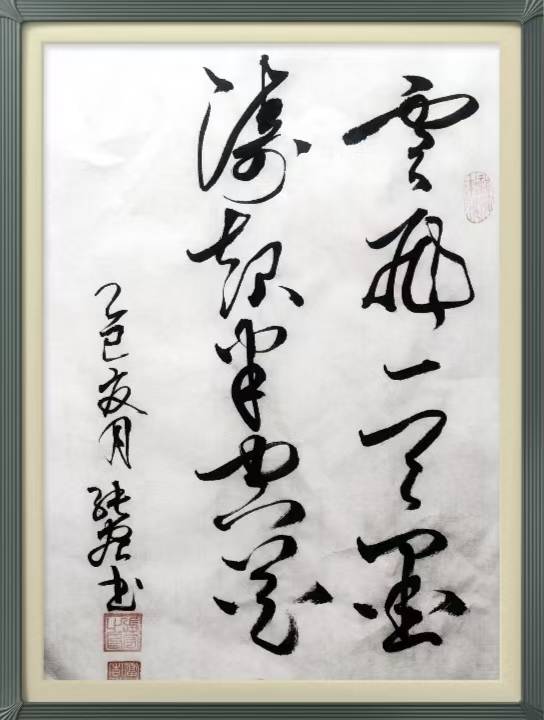 雲飛一天墨
濤起半空
乙巳夏月 书